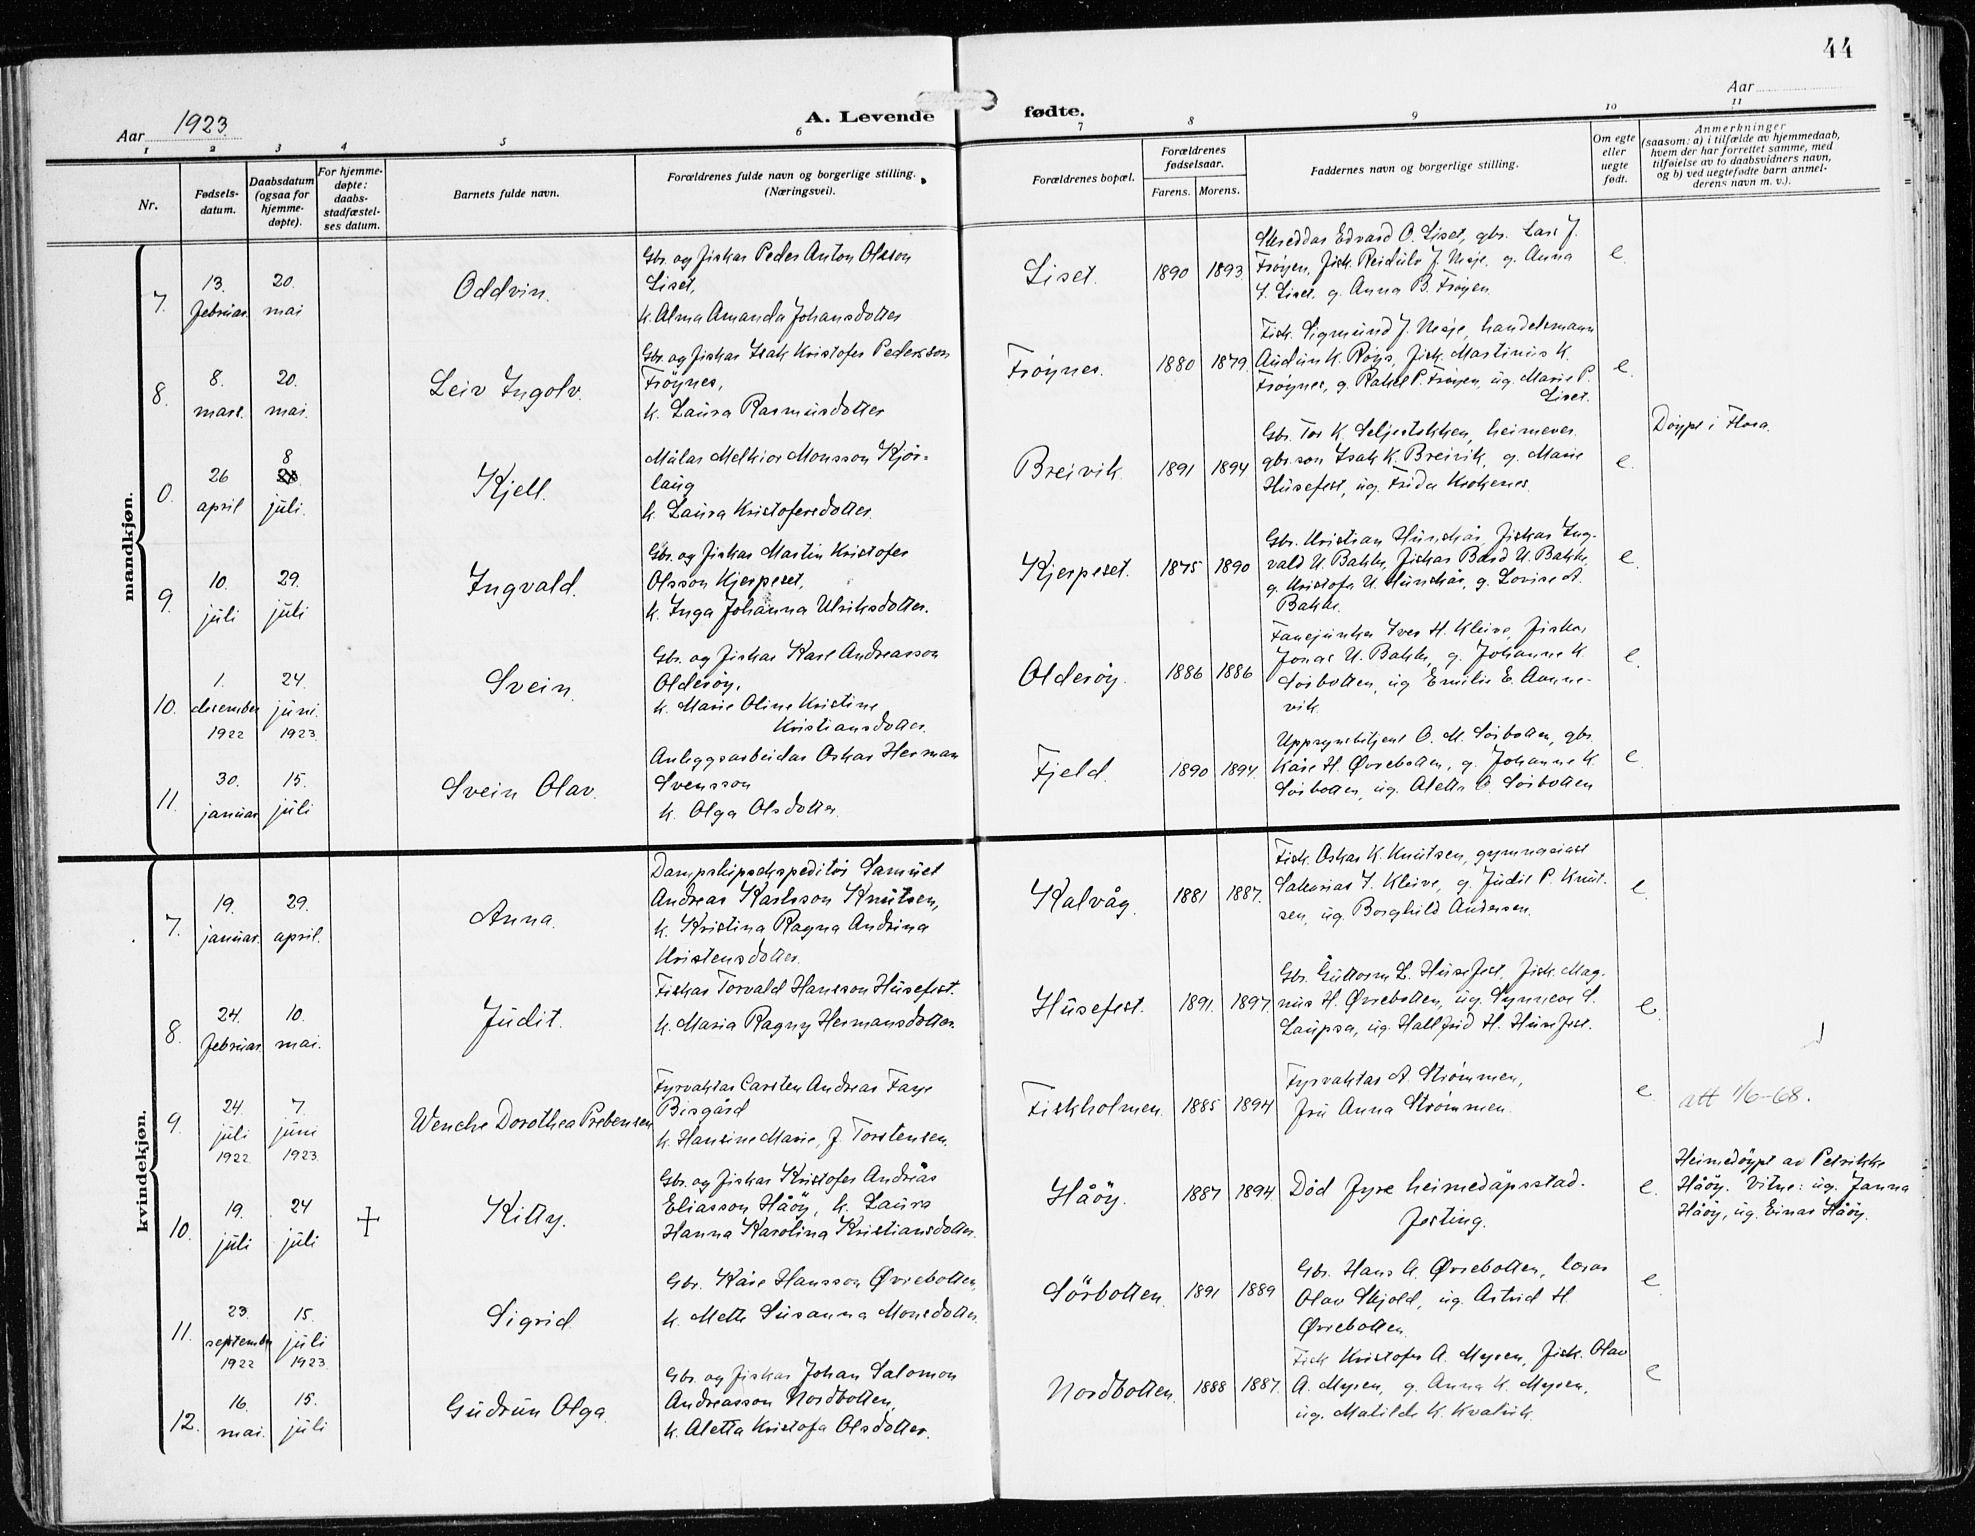 44
Aar 1923.
A. Levende fødte.
Aar
1 2 3 4 5 6 7 8 9 10 11
Nr.
Fødsels-
datum.
Daabsdatum
(ogsaa for
hjemme-
døpte).
For hjemme-
døpte:
daabs-
stadfæstel-
ses datum.
Barnets fulde navn.
Forældrenes fulde navn og borgerlige stilling.
(Næringsvei).
Forældrenes bopæl.
Forældrenes
fødselsaar.
Farens. Morens.
Faddernes navn og borgerlige stilling.
Om egte
eller
uegte
født.
Anmerkninger
(saasom: a) i tilfælde av hjemmedaab,
hvem der har forrettet samme, med
tilføielse av to daabsvidners navn,
og b) ved uegtefødte barn anmel-
derens navn m. v.).
mandkjøn.
7.
13.
februar.
20.
mai
Oddvin.
Gbr. og fiskar Peder Anton Olsson
Liset,
k. Alma Amanda Johansdotter
Liset.
1890 1893.
Skreddar Edvard O. Liset, gbr. Lars J.
Frøyen, fisk. Reidulv J. Meje, g. Anna
S. Liset, g. Anna B. Frøyen.
e.
8.
8.
mars.
20.
mai.
Leiv Ingolv.
Gbr. og fiskar Isak Kristofer Pedersson
Frøynes,
k. Laura Rasmusdotter
Frøynes.
1880 1879.
Fisk. Sigmund J. Meje, handelsmann
Audun K. Røys, fisk. Martinus K.
Frøynes, g. Rakel P. Frøyen, ug. Marie P.
Liset.
e.
0.
26
april
8
juli.
Kjell.
Målar Melkior Monsson Kjör-
laug
k. Laura Kristofersdotter.
Breivik.
1891 1894
Gbr. Tor K. Seljestokken, heimever.
gbr.son Isak K. Breivik, g. Marie
Husefest, ug. Frida Krokenes.
e.
Döypt i Flora.
9.
10.
juli
29.
juli
Ingvald.
Gbr. og fiskar Martin Kristofer
Olsson Kjerpeset,
k. Inga Johanna Ulriksdotter.
Kjerpeset.
1875 1890
Gbr. Kristian Hunskår, fiskar Ing-
vald U. Bakke, fiskar Bård U. Bakke,
g. Kristofa U. Hunskår, g. Lovise A.
Bakke.
e.
10.
1.
desember
1922
24.
juni.
1923.
Svein.
Gbr. og fiskar Karl Andreasson
Oldersöy,
k. Marie Oline Kristine
Kristiansdotter.
Oldersöy.
1886 1886
Fanejunker Iver H. Kleive, fiskar
Jonas U. Bakke, g. Johanne K.
Sörbotten, ug Emilie E. Aanne-
vik.
e.
11.
30.
januar
15.
juli
Svein Olav.
Anleggsarbeidar Oskar Herman
Svensson
k. Olga Olsdotter.
Fjeld.
1890 1894.
Uppsynsbetjent O. M. Sörbotten, gbr.
Kåre H. Øvrebotten, g. Johanne K.
Sörbotten, ug. Alette O. Sörbotten
e.
kvindekjøn.
7.
19.
januar.
29.
april.
Anna.
Dampskipsekspeditör Samuel
Andreas Karlsson Knutsen,
k. Kristina Ragna Andrina
Kristensdotter.
Kalvåg.
1881 1887.
Fisk. Oskar K. Knutsen, gymnasiast
Sakarias I. Kleive, g. Judit P. Knut-
sen, ug. Borghild Andersen.
e.
8.
24.
februar.
10.
mai.
Judit.
Fiskar Torvald Hansson Husefest.
k. Maria Ragny Hermansdotter.
Husefest.
1891. 1897.
Gbr. Guttorm L. Husefest, fisk. Mag-
nus H. Øvrebotten, ug. Synneve S.
Laupsa, ug. Hallfrid H. Husefest.
e.
9.
24.
juli
1922.
7.
juni
1923.
Wenche Dorothea Prebensen
Fyrvaktar Carsten Andreas Faye
Bisgård
k. Hansine Marie, f. Torstensen.
Fiskholmen.
1885 1894
Fyrvaktar A. Strömmen,
fru Anna Strömmen.
e.
att 1/6-68.
10.
19.
juli
24
juli
+
Kitty.
Gbr. og fiskar Kristofer Andreas
Eliasson Håöy, k. Laura
Hanna Karolina Kristiansdotter.
Håöy.
1887 1894.
Död fyre heimedåpsstad-
festing.
e.
Heimedöypt av Petrikke
Håöy. Vitne: ug. Janna
Håöy, ug. Einar Håöy.
11.
23.
september
1922
15.
juli
1923.
Sigrid.
Gbr. Kåre Hansson Øvrebotten,
k. Mette Susanna Monsdotter.
Sörbotten.
1891 1889
Gbr. Hans A. Øvrebotten, lærar
Olav Skjold, ug. Astrid H.
Øvrebotten.
e.
12.
16.
mai.
15.
juli
Gudrun Olga.
Gbr. og fiskar Johan Salomon
Andreasson Nordbotten,
k. Aletta Kristofa Olsdotter.
Nordbotten.
1888 1887.
Fisk Kristofer A. Myren, fisk. Olav
A. Myren, g. Anna K. Myren,
ug. Matilde K. Kvalvik.
e